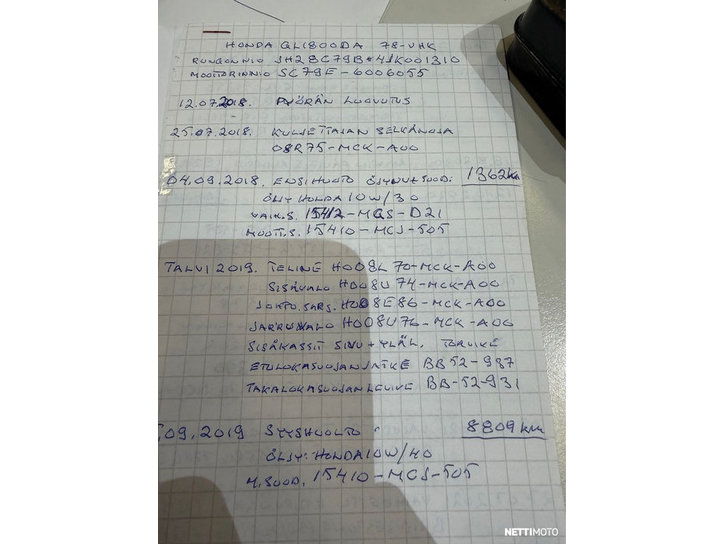 HONDA GL1800DA 78-UHK
RUNGON N:O JH2SC79B*4JK001310
MOOTTORIN N:O SC79E-6006055
12.07.2018. PYÖRÄN LUOVUTUS
25.07.2018. KULJETTAJAN SELKÄNOJA
08R75-MCK-A00
04.09.2018. ENSIHUOTO 1362km
ÖLJY HONDA 10W/30
VAIH.S. 15412-MGS-D21
MOOTT.S. 15410-MCJ-505
TALVI 2019. TELINE H008L70-MCK-A00
SISÄVALO H008U74-MCK-A00
JOHTO.SARJ. H008E86-MCK-A00
JARRUVALO H008U76-MCK-A00
SISÄKASSIT SIVU+YLÄL.
ETULOKASUOJAN JATKE BB52-987
TAKALOKASUOJAN BB-52-931
.09.2019 SYYSHUOLTO 8809km
ÖLJY: HONDA 10W/40
M.SUOD. 15410-MCJ-505
NETTIMOTO